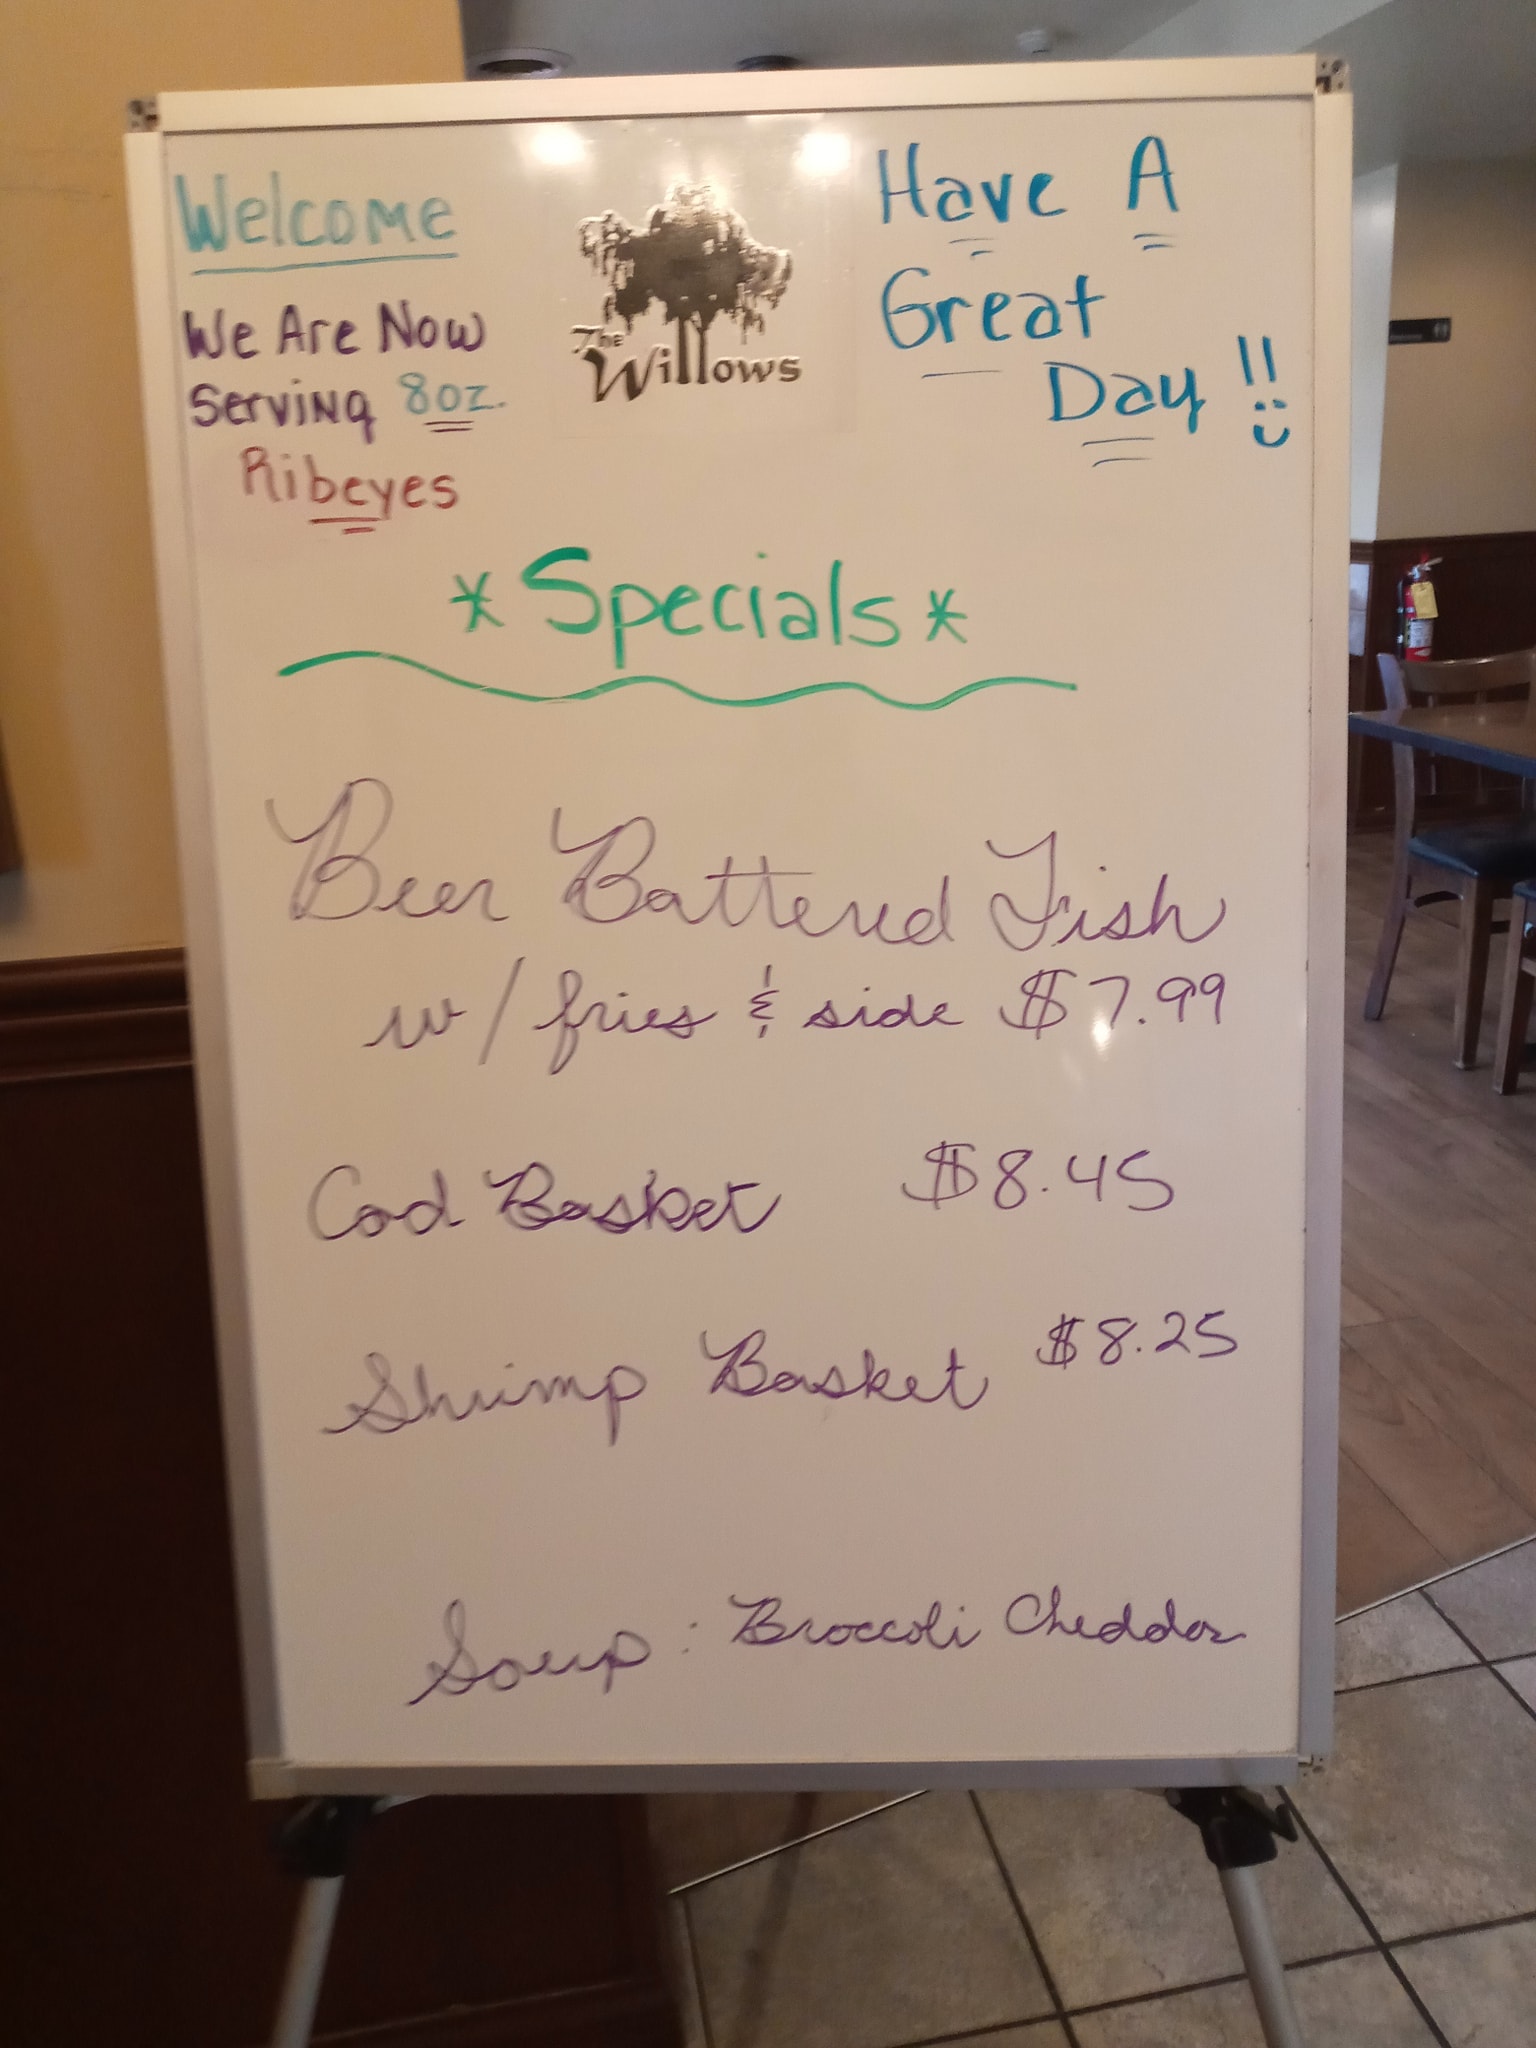 Welcome
We Are Now
Serving 8oz.
Ribeyes
The
Willows
Have A
Great
Day !!
* Specials *
Beer Battered Fish
w/ fries & side $7.99
Cod Basket $8.45
Shrimp Basket $8.25
Soup: Broccoli Cheddar